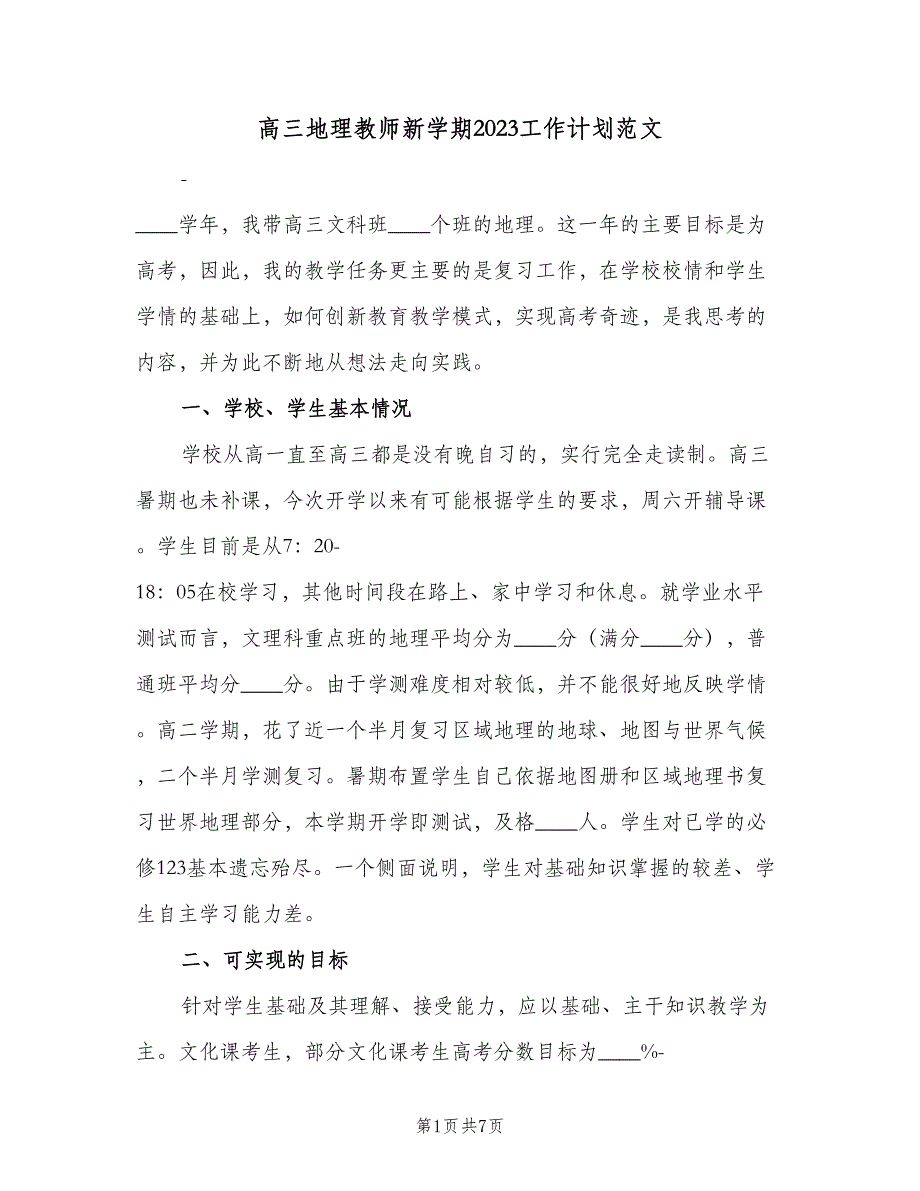 高三地理教师新学期2023工作计划范文
-
____学年，我带高三文科班____个班的地理。这一年的主要目标是为
高考，因此，我的教学任务更主要的是复习工作，在学校校情和学生
学情的基础上，如何创新教育教学模式，实现高考奇迹，是我思考的
内容，并为此不断地从想法走向实践。
一、学校、学生基本情况
学校从高一直至高三都是没有晚自习的，实行完全走读制。高三
暑期也未补课，今次开学以来有可能根据学生的要求，周六开辅导课
。学生目前是从7：20-
18：05在校学习，其他时间段在路上、家中学习和休息。就学业水平
测试而言，文理科重点班的地理平均分为____分（满分____分），普
通班平均分____分。由于学测难度相对较低，并不能很好地反映学情
。高二学期，花了近一个半月复习区域地理的地球、地图与世界气候
，二个半月学测复习。暑期布置学生自己依据地图册和区域地理书复
习世界地理部分，本学期开学即测试，及格____人。学生对已学的必
修123基本遗忘殆尽。一个侧面说明，学生对基础知识掌握的较差、学
生自主学习能力差。
二、可实现的目标
针对学生基础及其理解、接受能力，应以基础、主干知识教学为
主。文化课考生，部分文化课考生高考分数目标为____%-
第1页共7页